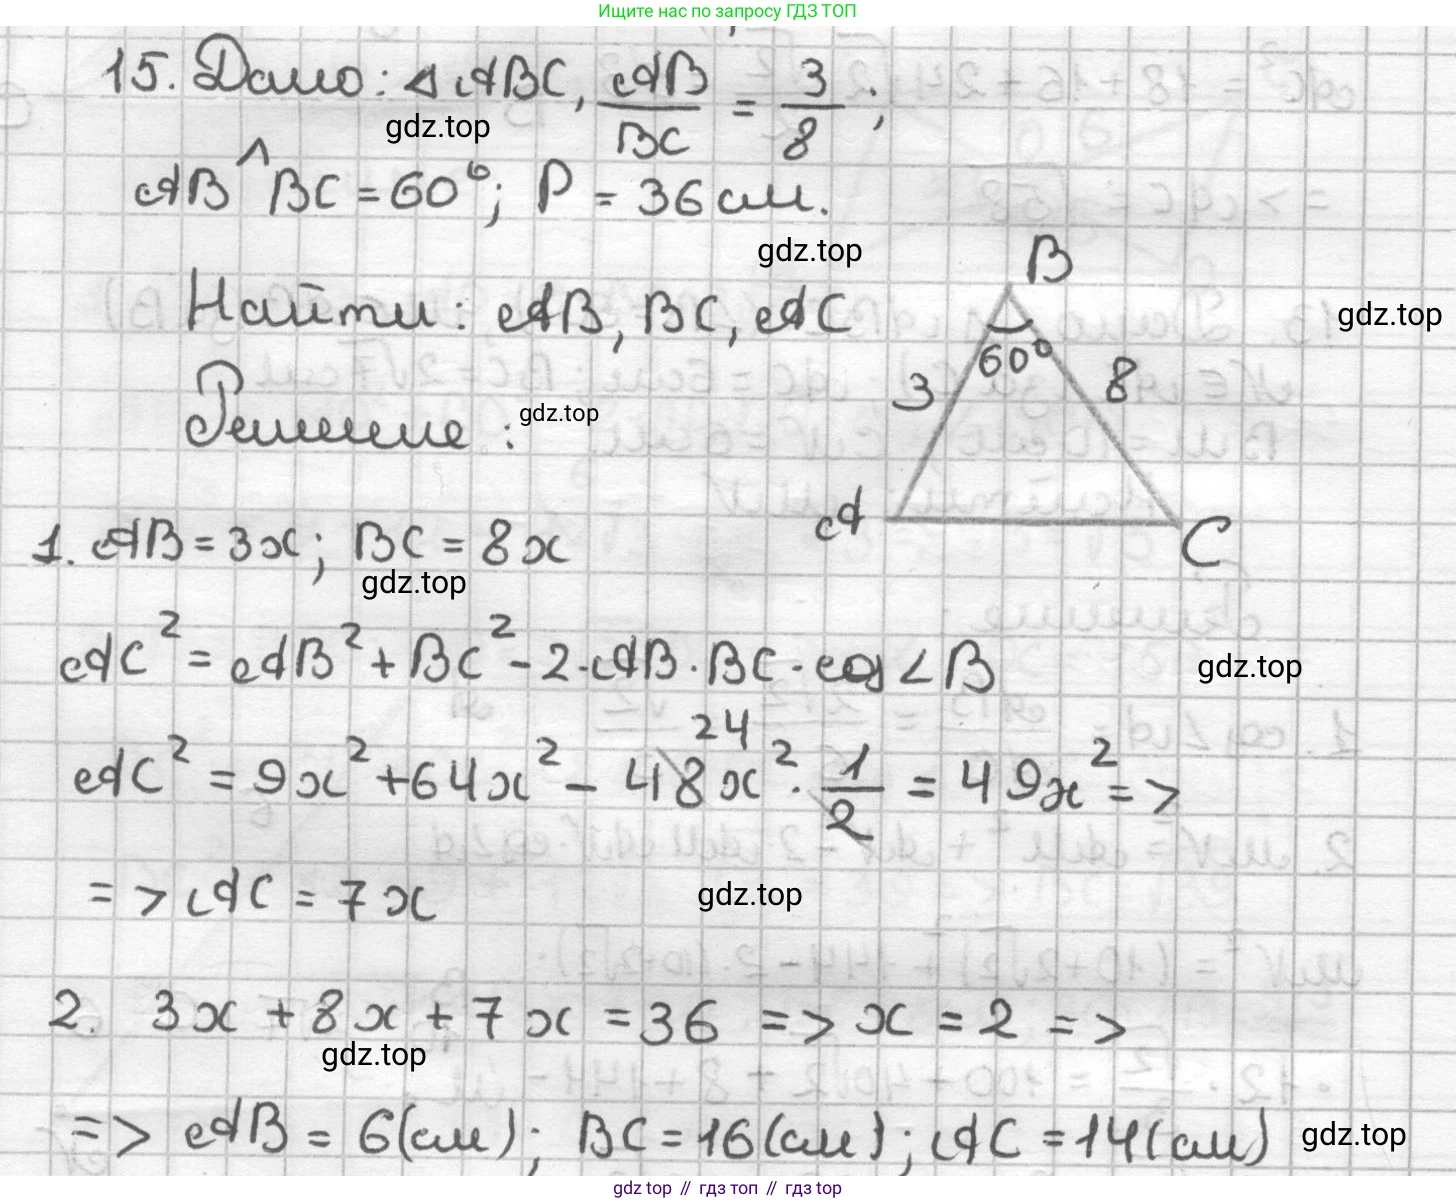 Ищите нас по запросу ГДЗ ТОП
15. Дано: △ ABC, AB/BC = 3/8 ;
gdz.top
AB^BC = 60°; P = 36 см.
gdz.top
B
Найти: AB, BC, AC
gdz.top
60°
3
8
Решение :
gdz.top
A
C
1. AB = 3x; BC = 8x
gdz.top
AC² = AB² + BC² - 2·AB·BC·cos∠B
gdz.top
24
AC² = 9x² + 64x² - 48x² · 1/2 = 49x² =>
=> AC = 7x
gdz.top
2. 3x + 8x + 7x = 36 => x = 2 =>
gdz.top
=> AB = 6(см); BC = 16(см); AC = 14(см)
gdz.top
gdz top // гдз топ // gdz top